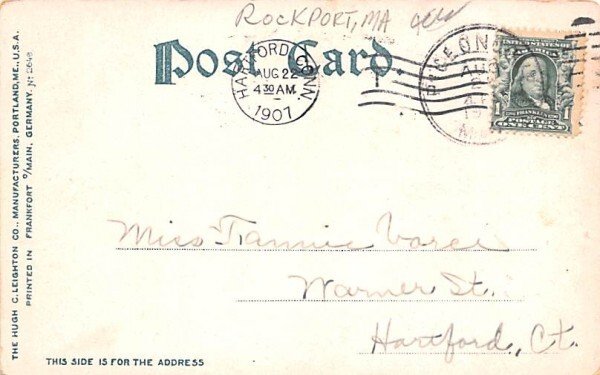 ROCKPORT, MA
Post Card
HARTFORD, CONN.
AUG 22
4 30 AM
1907
UNITED STATES OF AMERICA
FRANKLIN
POSTAGE
1 ONE CENT 1
THE HUGH C. LEIGHTON CO., MANUFACTURERS, PORTLAND, ME., U.S.A.
PRINTED IN FRANKFORT O/MAIN, GERMANY. No 2648
Miss Fannie Varee
Warner St.
Hartford, Ct.
THIS SIDE IS FOR THE ADDRESS